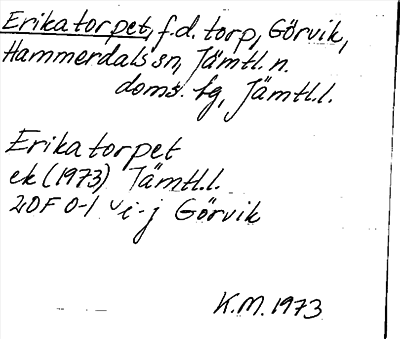 Erikatorpet, f.d. torp, Görvik,
Hammerdals sn, Jämtl. n.
doms. fg, Jämtl.l.
Erikatorpet
ek (1973) Jämtl.l.
20F 0-1 i-j Görvik
K.M. 1973